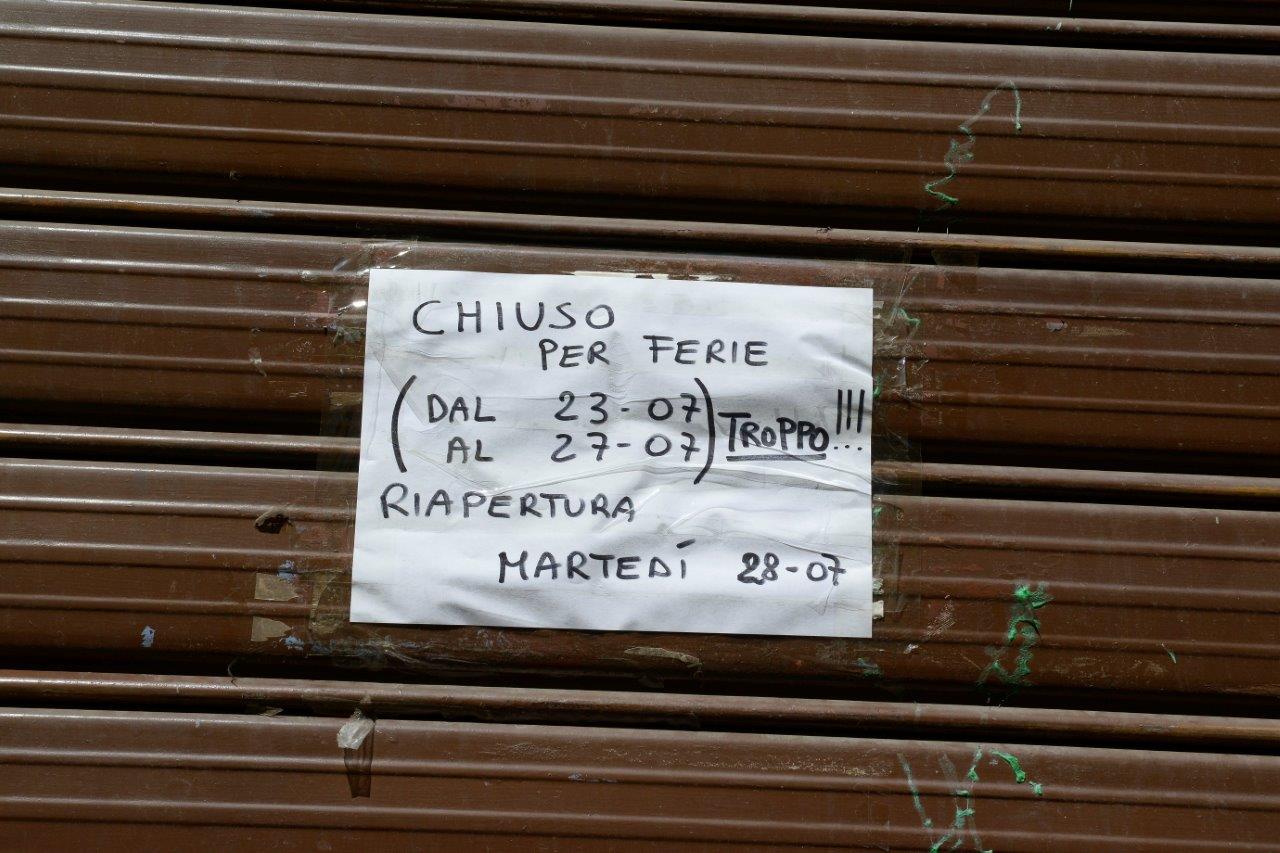 CHIUSO
PER FERIE
(DAL 23-07) TROPPO!!!
AL 27-07
RIAPERTURA
MARTEDÍ 28-07